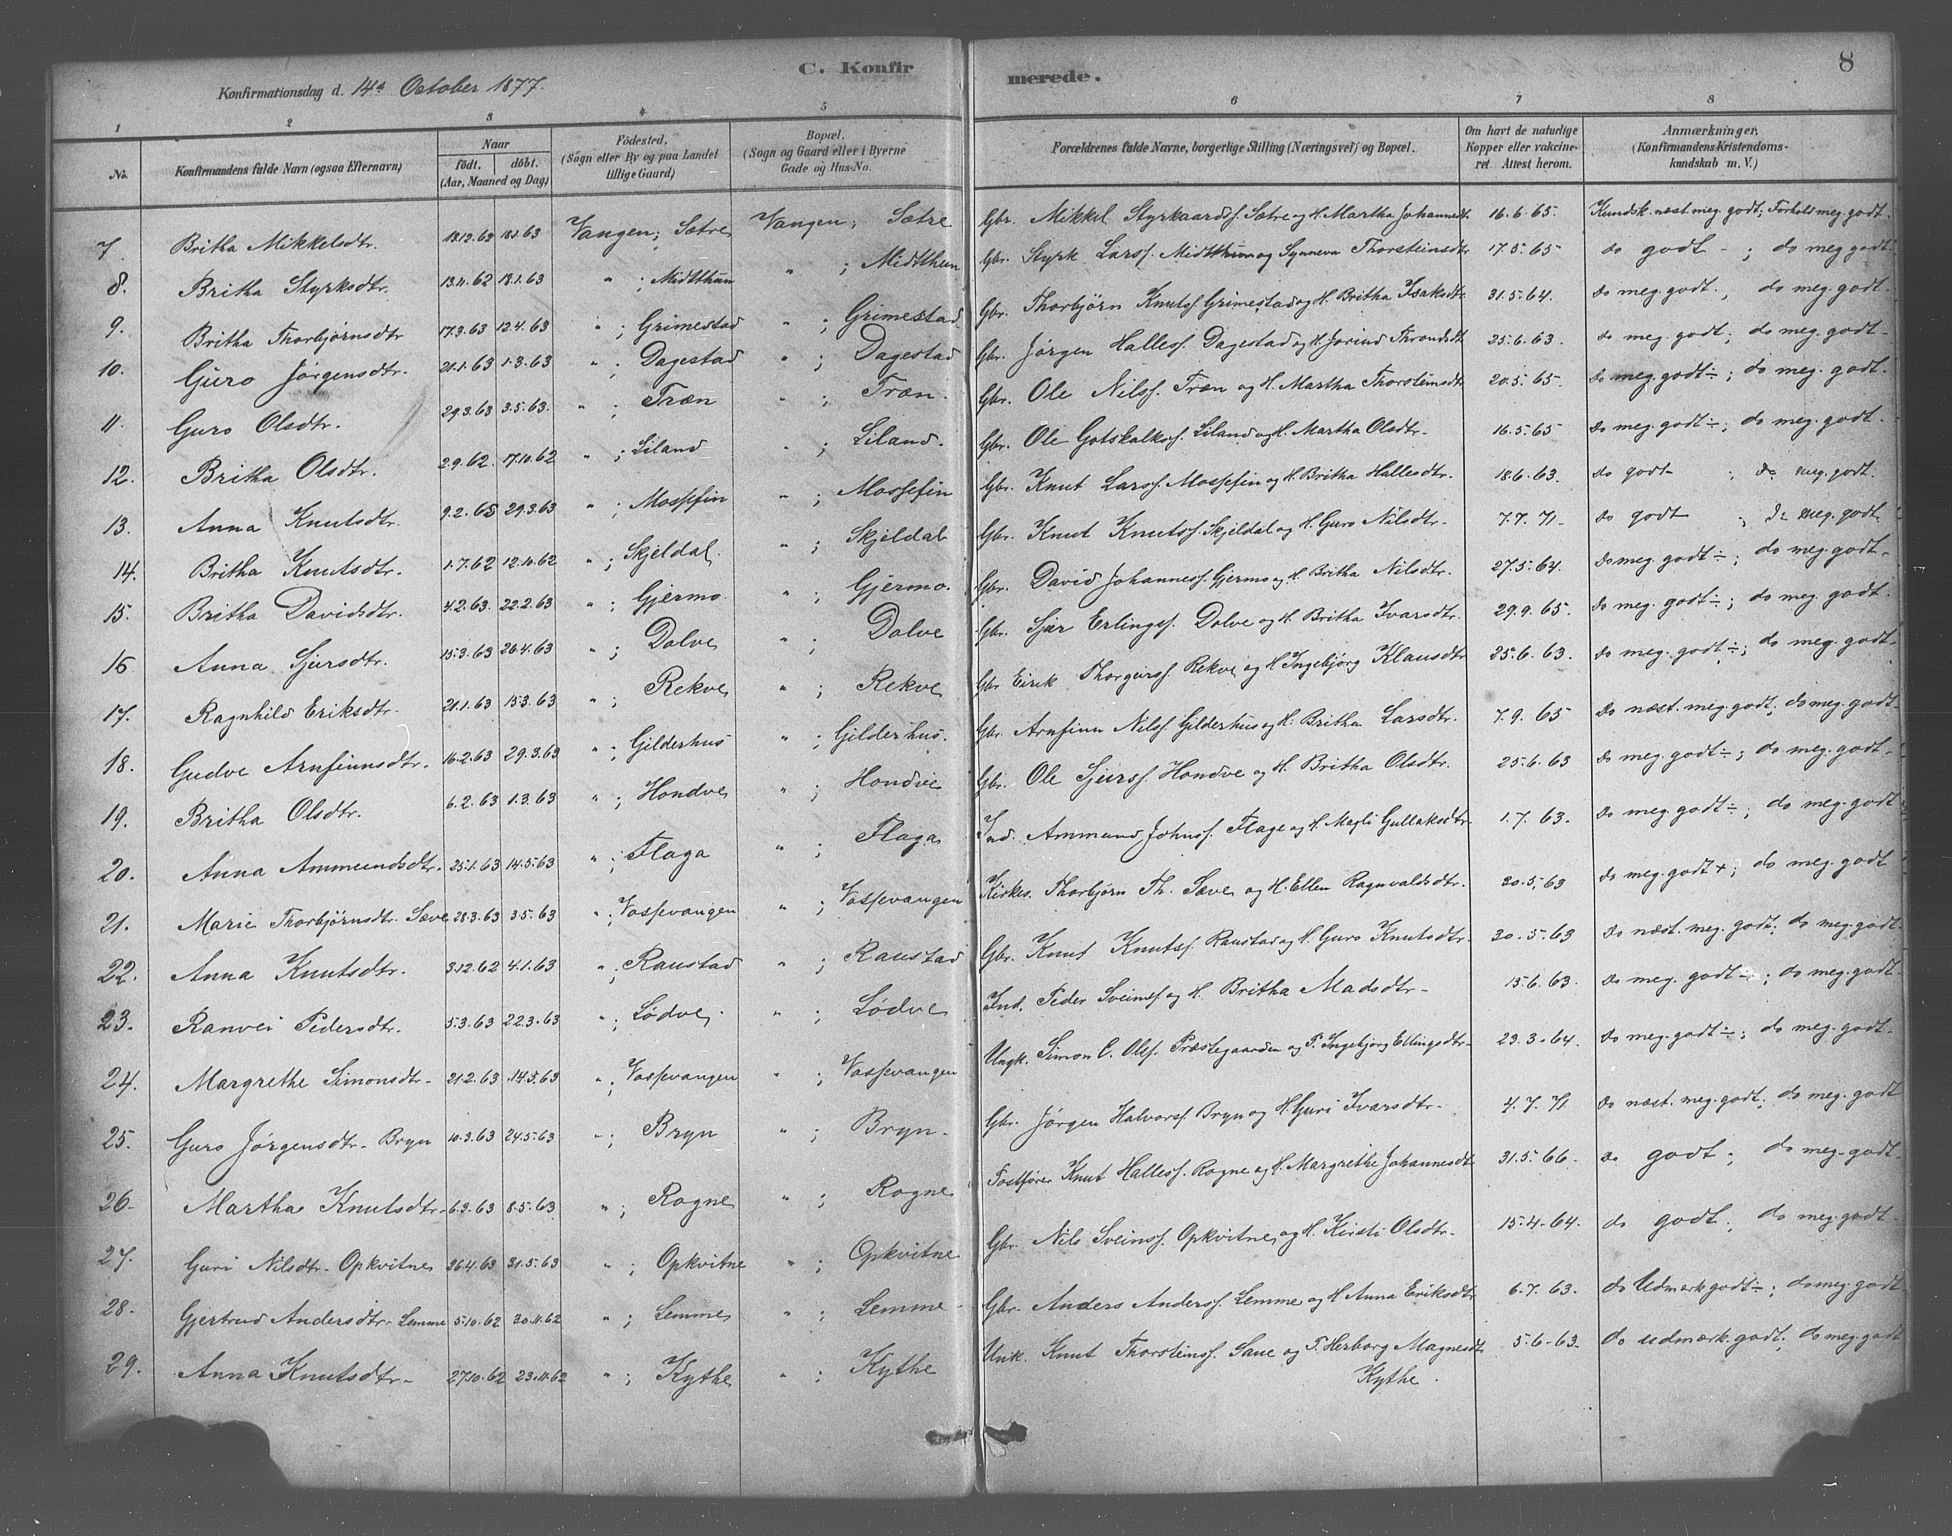 C. Konfirmerede. 8
Konfirmationsdag d. 14de October 1877.
1 2 3 4 5 6 7 8
No. Konfirmandens fulde Navn (ogsaa Efternavn) Naar födt. döbt. (Aar, Maaned og Dag) Födested. (Sogn eller By og paa Landet tillige Gaard) Bopæl. (Sogn og Gaard eller i Byerne Gade og Hus-No. Forældrenes fulde Navne, borgerlige Stilling (Næringsvei) og Bopæl. Om havt de naturlige Kopper eller vakcineret. Attest herom. Anmærkninger. (Konfirmandens Kristendomskundskab m. V.)
7. Britha Mikkelsdtr. 18.12.62 18.1.63 Vangen; Sætre Vangen; Sætre Gbr. Mikkel Styrkaards. Sætre og H. Martha Johannesdt. 16.6.65. Kundsk. næst meg. godt; Forhold meg. godt.
8. Britha Styrksdtr. 13.11.62 18.1.63 " ; Midtthun " ; Midtthun Gbr. Styrk Larss. Midtthun og Synneva Thorsteinsdtr 17.5.65 do godt - ; do meg godt.
9. Britha Thorbjørnsdtr 17.3.63 12.4.63 " ; Grimestad " ; Grimestad. Gbr. Thorbjørn Knuts. Grimestad og H. Britha Isaksdtr. 31.5.64. do meg. godt. ; do meg. godt.
10. Guro Jørgensdtr. 21.1.63 1.3.63 " ; Dagestad " ; Dagestad Gbr. Jørgen Halles. Dagestad og H. Jorind Throndsdt 25.6.63. do meg. godt ; do meg. godt.
11. Guro Olsdtr. 29.3.63 3.5.63. " ; Træn " ; Træn. Gbr. Ole Nilss. Træn og H. Martha Thorsteinsdtr 20.5.65. do meg. godt÷ ; do meg. godt.
12. Britha Olsdtr. 2.9.62. 17.10.62 " ; Liland " ; Liland. Gbr. Ole Gotskalks. Liland og H. Martha Olsdtr. 16.5.65 do meg. godt÷ ; do meg. godt.
13. Anna Knutsdtr. 9.2.63 29.3.63 " ; Mossefin " ; Mossefin Gbr. Knut Larss. Mossefin og H. Britha Hallesdtr. 18.6.63. do godt ; do meg. godt.
14. Britha Knutsdtr. 1.7.62 12.10.62 " ; Skjeldal. " ; Skjeldal Gbr. Knut Knuts. Skjeldal og H. Guro Nilsdtr. 7.7.71. do godt ; do meg. godt.
15. Britha Davidsdtr. 4.2.63. 22.2.63 " ; Gjermo. " ; Gjermo. Gbr. David Johanness. Gjermo og H. Britha Nilsdtr. 27.5.64. do meg. godt÷ ; do meg. godt.
16 Anna Sjursdtr. 15.3.63 26.4.63 " ; Dolve " ; Dolve Gbr. Sjur Erlings. Dolve og H. Britha Ivarsdtr. 29.9.65. do meg. godt÷ ; do meg. godt.
17. Ragnhild Eriksdtr. 21.1.63 15.3.63 " ; Rekve " ; Rekve Gbr. Eirik Thorgeirs. Rekve og H. Ingebjørg Klausdtr 25.6.63. do meg. godt÷ ; do meg. godt.
18. Gudve Arnfinnsdtr. 16.2.63 29.3.63 " ; Gilderhus " ; Gilderhus. Gbr. Arnfinn Nils. Gilderhus og H. Britha Larsdtr. 7.9.65 do næst. meg. godt. ; do meg. godt.
19. Britha Olsdtr. 6.2.63 1.3.63 " ; Hondve " ; Hondve Gbr. Ole Sjurs. Hondve og H. Britha Olsdtr. 25.6.63 do meg. godt÷ ; do meg. godt.
20. Anna Ammundsdtr. 25.1.63 14.5.63 " ; Flaga " ; Flaga Ind. Ammund Johns. Flage og H. Magli Gullaksdtr. 1.7.63. do meg. godt÷ ; do meg. godt
21. Marie Thorbjørnsdtr. Sæve 28.3.63 3.5.63 " ; Vossevangen " ; Vossevangen Kirkes. Thorbjørn Th. Sæve og H. Ellen Ragnvaldsdtr. 30.5.63 do meg. godt+ ; do meg. godt
22. Anna Knutsdtr. 3.12.62 4.1.63 " ; Raustad " ; Raustad Gbr. Knut Knuts. Raustad og H. Guro Knutsdtr. 30.5.63 do næst. meg. godt. ; do meg. godt.
23. Ranvei Pedersdtr. 5.3.63 22.3.63 " ; Lødve. " ; Lødve Ind. Peder Sveins. og H. Britha Madsdtr. 15.6.63. do meg. godt÷ ; do meg. godt.
24. Margrethe Simonsdtr. 21.2.63 14.5.63 " ; Vossevangen " ; Vossevangen Ungk. Simon C. Ols. Præstegaarden og P. Ingebjørg Ellingsdtr. 23.3.64. do meg. godt÷ ; do meg. godt.
25. Guro Jørgensdtr. Bryn 10.3.63 24.5.63 " ; Bryn " ; Bryn. Gbr. Jørgen Halvors. Bryn og H. Guri Ivarsdtr. 4.7.71. do næst. meg. godt. ; do meg. godt
26. Martha Knutsdtr. 6.3.63 8.5.63 " ; Rogne " ; Rogne Postfører Knut Halles. Rogne og H. Margrethe Johannesdt. 31.5.66. do godt. ; do meg. godt.
27. Guri Nilsdtr. Opkvitne 26.4.63 31.5.63 " ; Opkvitne " ; Opkvitne Gbr. Nils Sveins. Opkvitne og H. Kirsti Olsdtr. 15.4.64. do godt. ; do meg. godt.
28. Gjertrud Andersdtr. Lemme 5.10.62 20.11.62 " ; Lemme " ; Lemme Gbr. Anders Anders. Lemme og H. Anna Eriksdtr 6.7.63. do Udmærk godt÷ ; do meg. godt
29. Anna Knutsdtr. 27.10.62 23.11.62 " ; Kythe " ; Kythe Unk. Knut Thorsteins. Saue og P. Herborg Magnesdt. 5.6.63. do udmærk. godt. ; do meg. godt
Kythe.